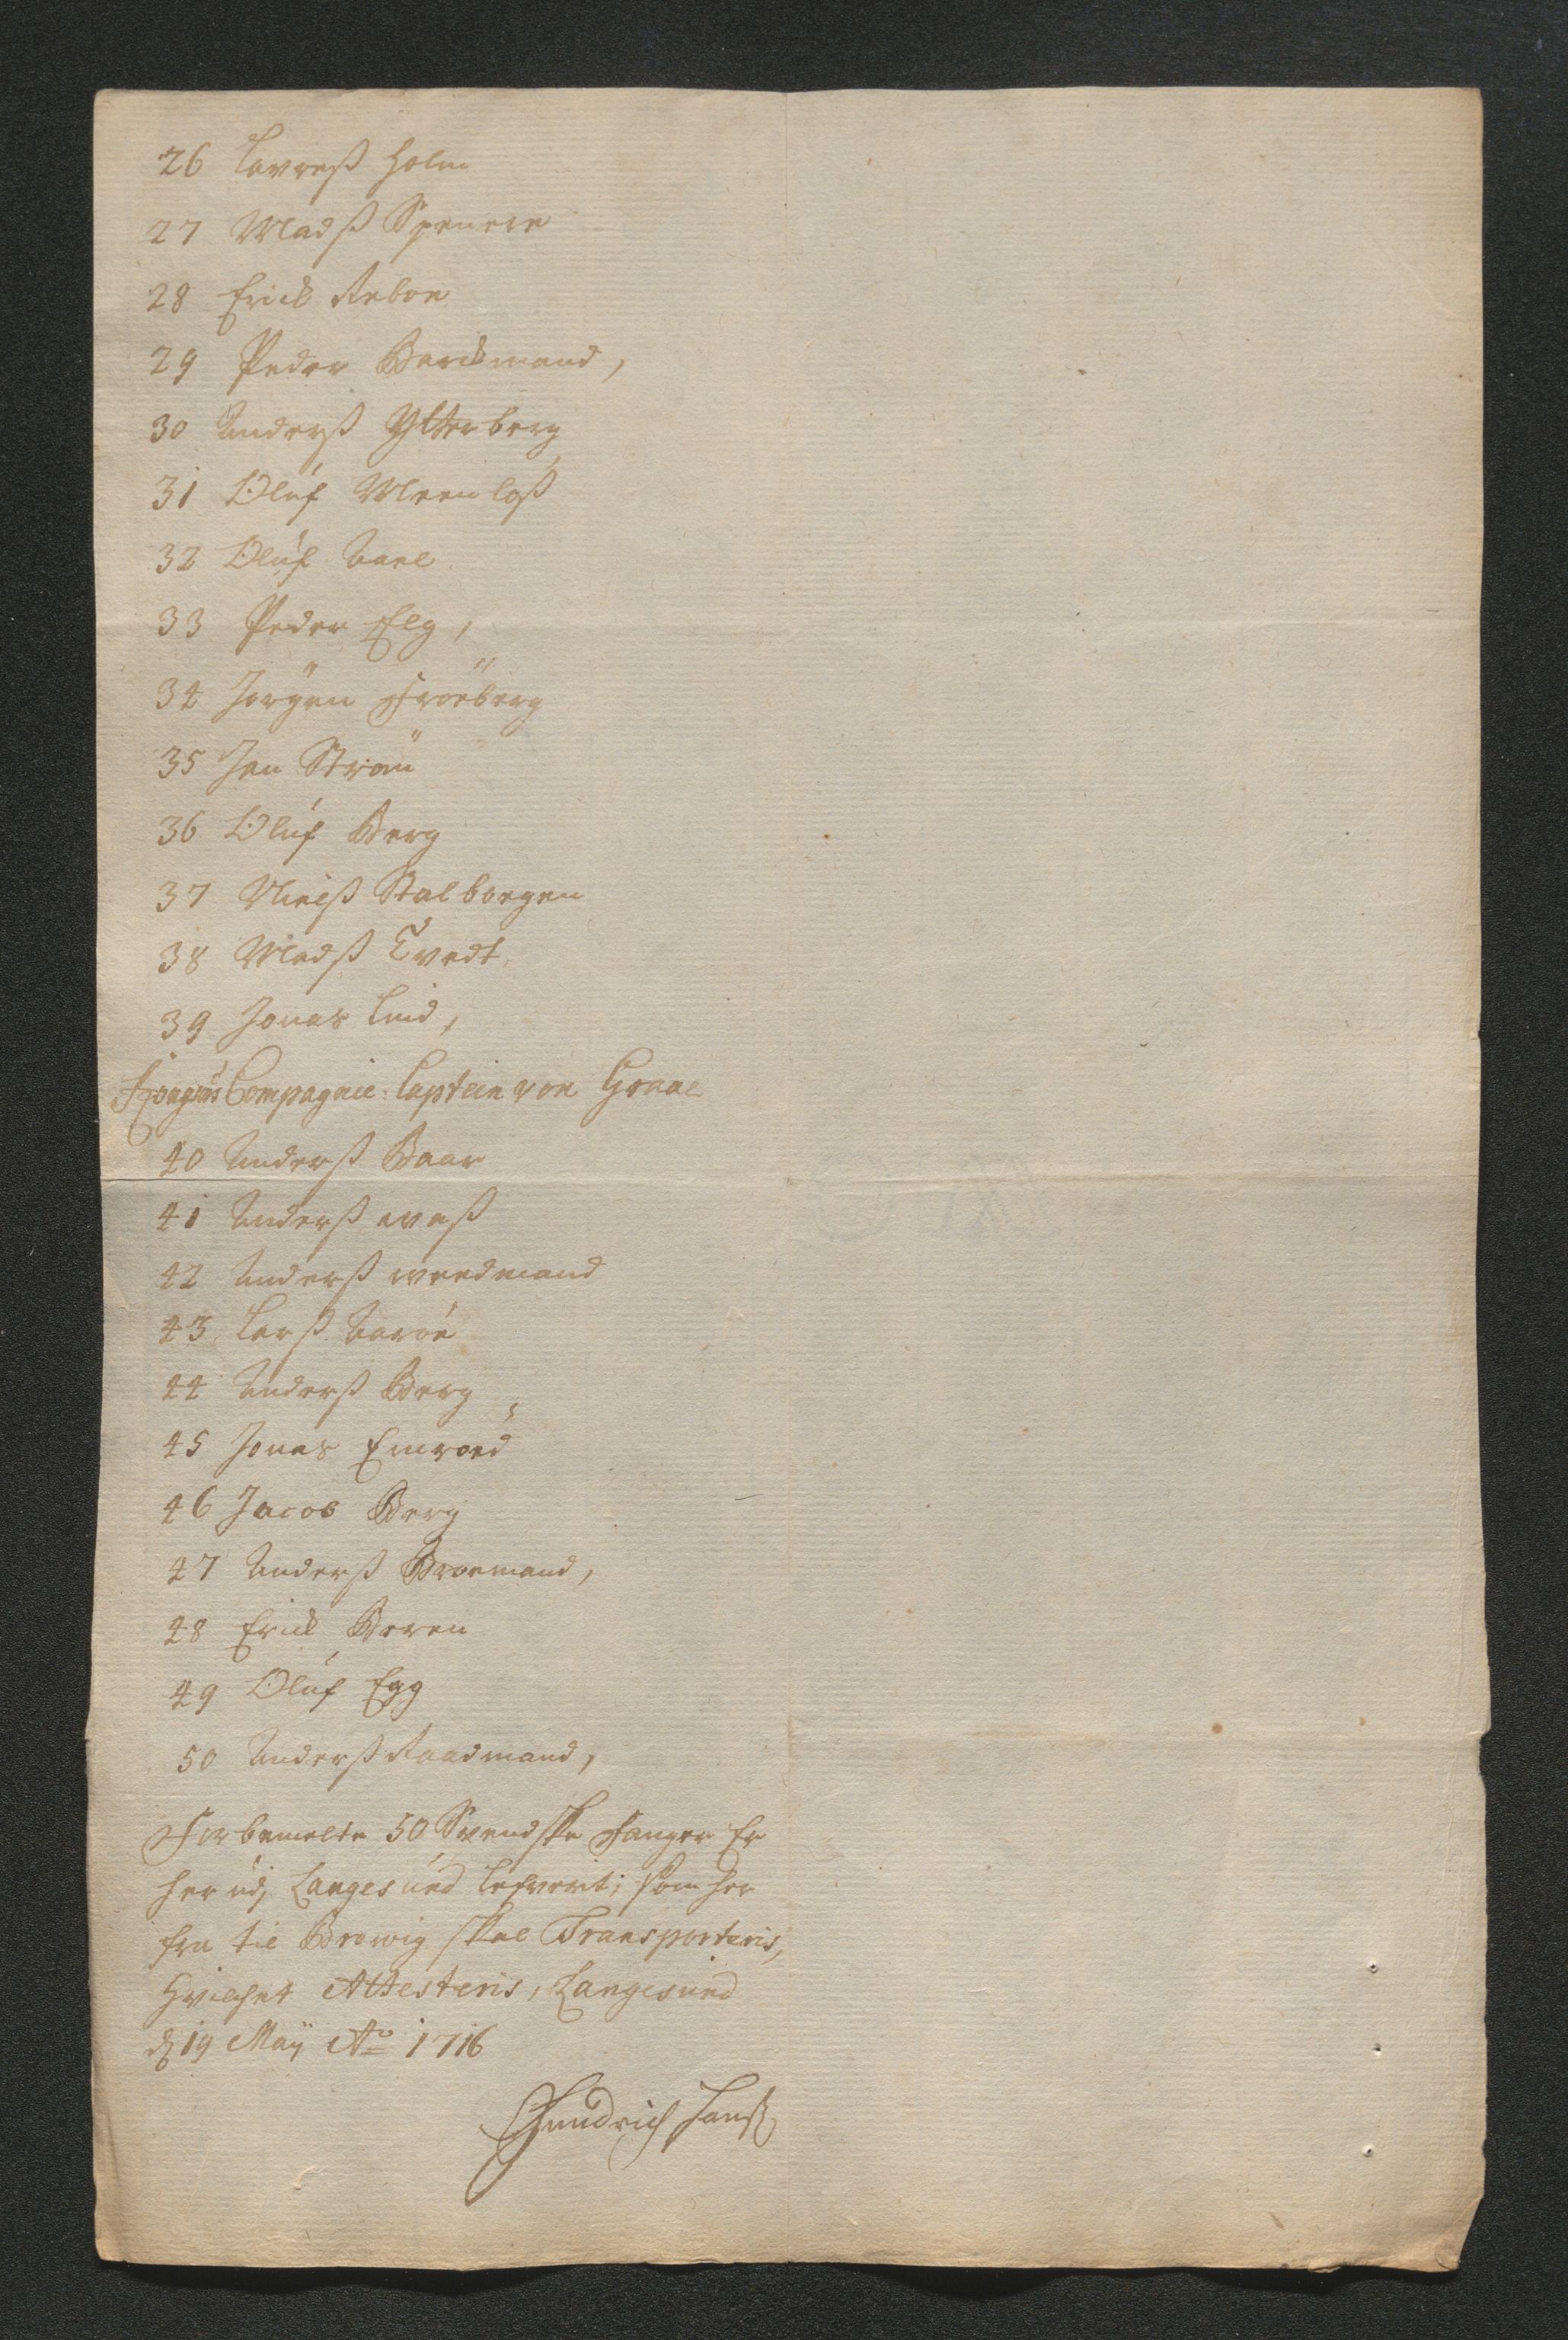 26 Lavreß Holm
27 Madß Spenere
28 Erick Reboe
29 Peder Barckmand,
30 Anderß Ytterberg
31 Oluf Meenloß
32 Oluf Aael
33 Peder Elg,
34 Jörgen Fröeberg
35 Jan Ström
36 Oluf Berg
37 Nielß Stalborgen
38 Madß Tvedt
39 Jonas Lind,
Compagnie Captein von Graae
40 Anderß Baar
41 Anderß waß
42 Anderß weedmand
43 Larß Aaröe
44 Anderß Berg
45 Jonas Emroed
46 Jacob Berg
47 Anderß Broemand,
48 Erick Beren
49 Oluf Egg
50 Anderß Raadmand,
Forbemelte 50 Svendske Fanger Er
her udj Langesund lefverit; som her
fra til Brewig skal Transporteris,
Hvilchet Attesteris, Langesund
d 19 Maÿ Ao 1716
Hendrich Hanß